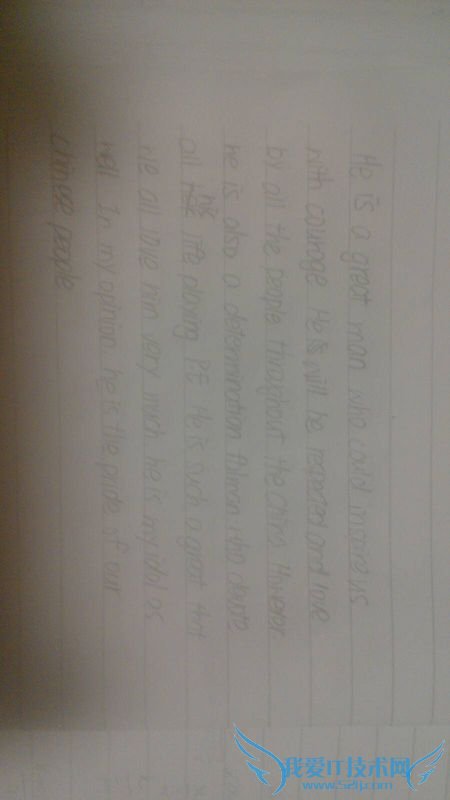 He is a great man who could inspire us
with courage. He is will be respected and love
by all the people throughout the China. However
he is also a determination who devote
all his life playing PE. He is such a great that
we all love him very much. he is my idol as
well. In my opinion. he is the pride of our
chinese people
我爱IT技术网
www.52ij.com